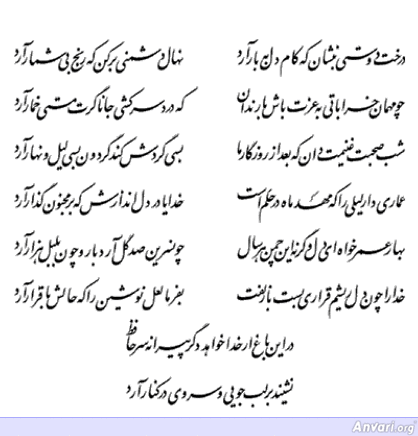 درخت دوستی بنشان که کام دل به بار آرد نهال دشمنی برکن که رنج بی شمار آرد
چو مهمان خراباتی به عزت باش با رندان که درد سر کشی جانا گرت مستی خمار آرد
شب صحبت غنیمت دان که بعد از روزگار ما بسی گردش کند گردون بسی لیل و نهار آرد
عماری دار لیلی را که مهد ماه در حکم است خدایا در دل اندازش که بر مجنون گذار آرد
بهار عمر خواه ای دل وگرنه این چمن هر سال چو نسرین صد گل آرد بار و چون بلبل هزار آرد
خدا را چون دل ریشم قراری بست با زلفت بفرما لعل نوشین را که حالش با قرار آرد
در این باغ ار خدا خواهد دگر پیرانه سر حافظ
نشیند بر لب جویی و سروی در کنار آرد
Anvari.org